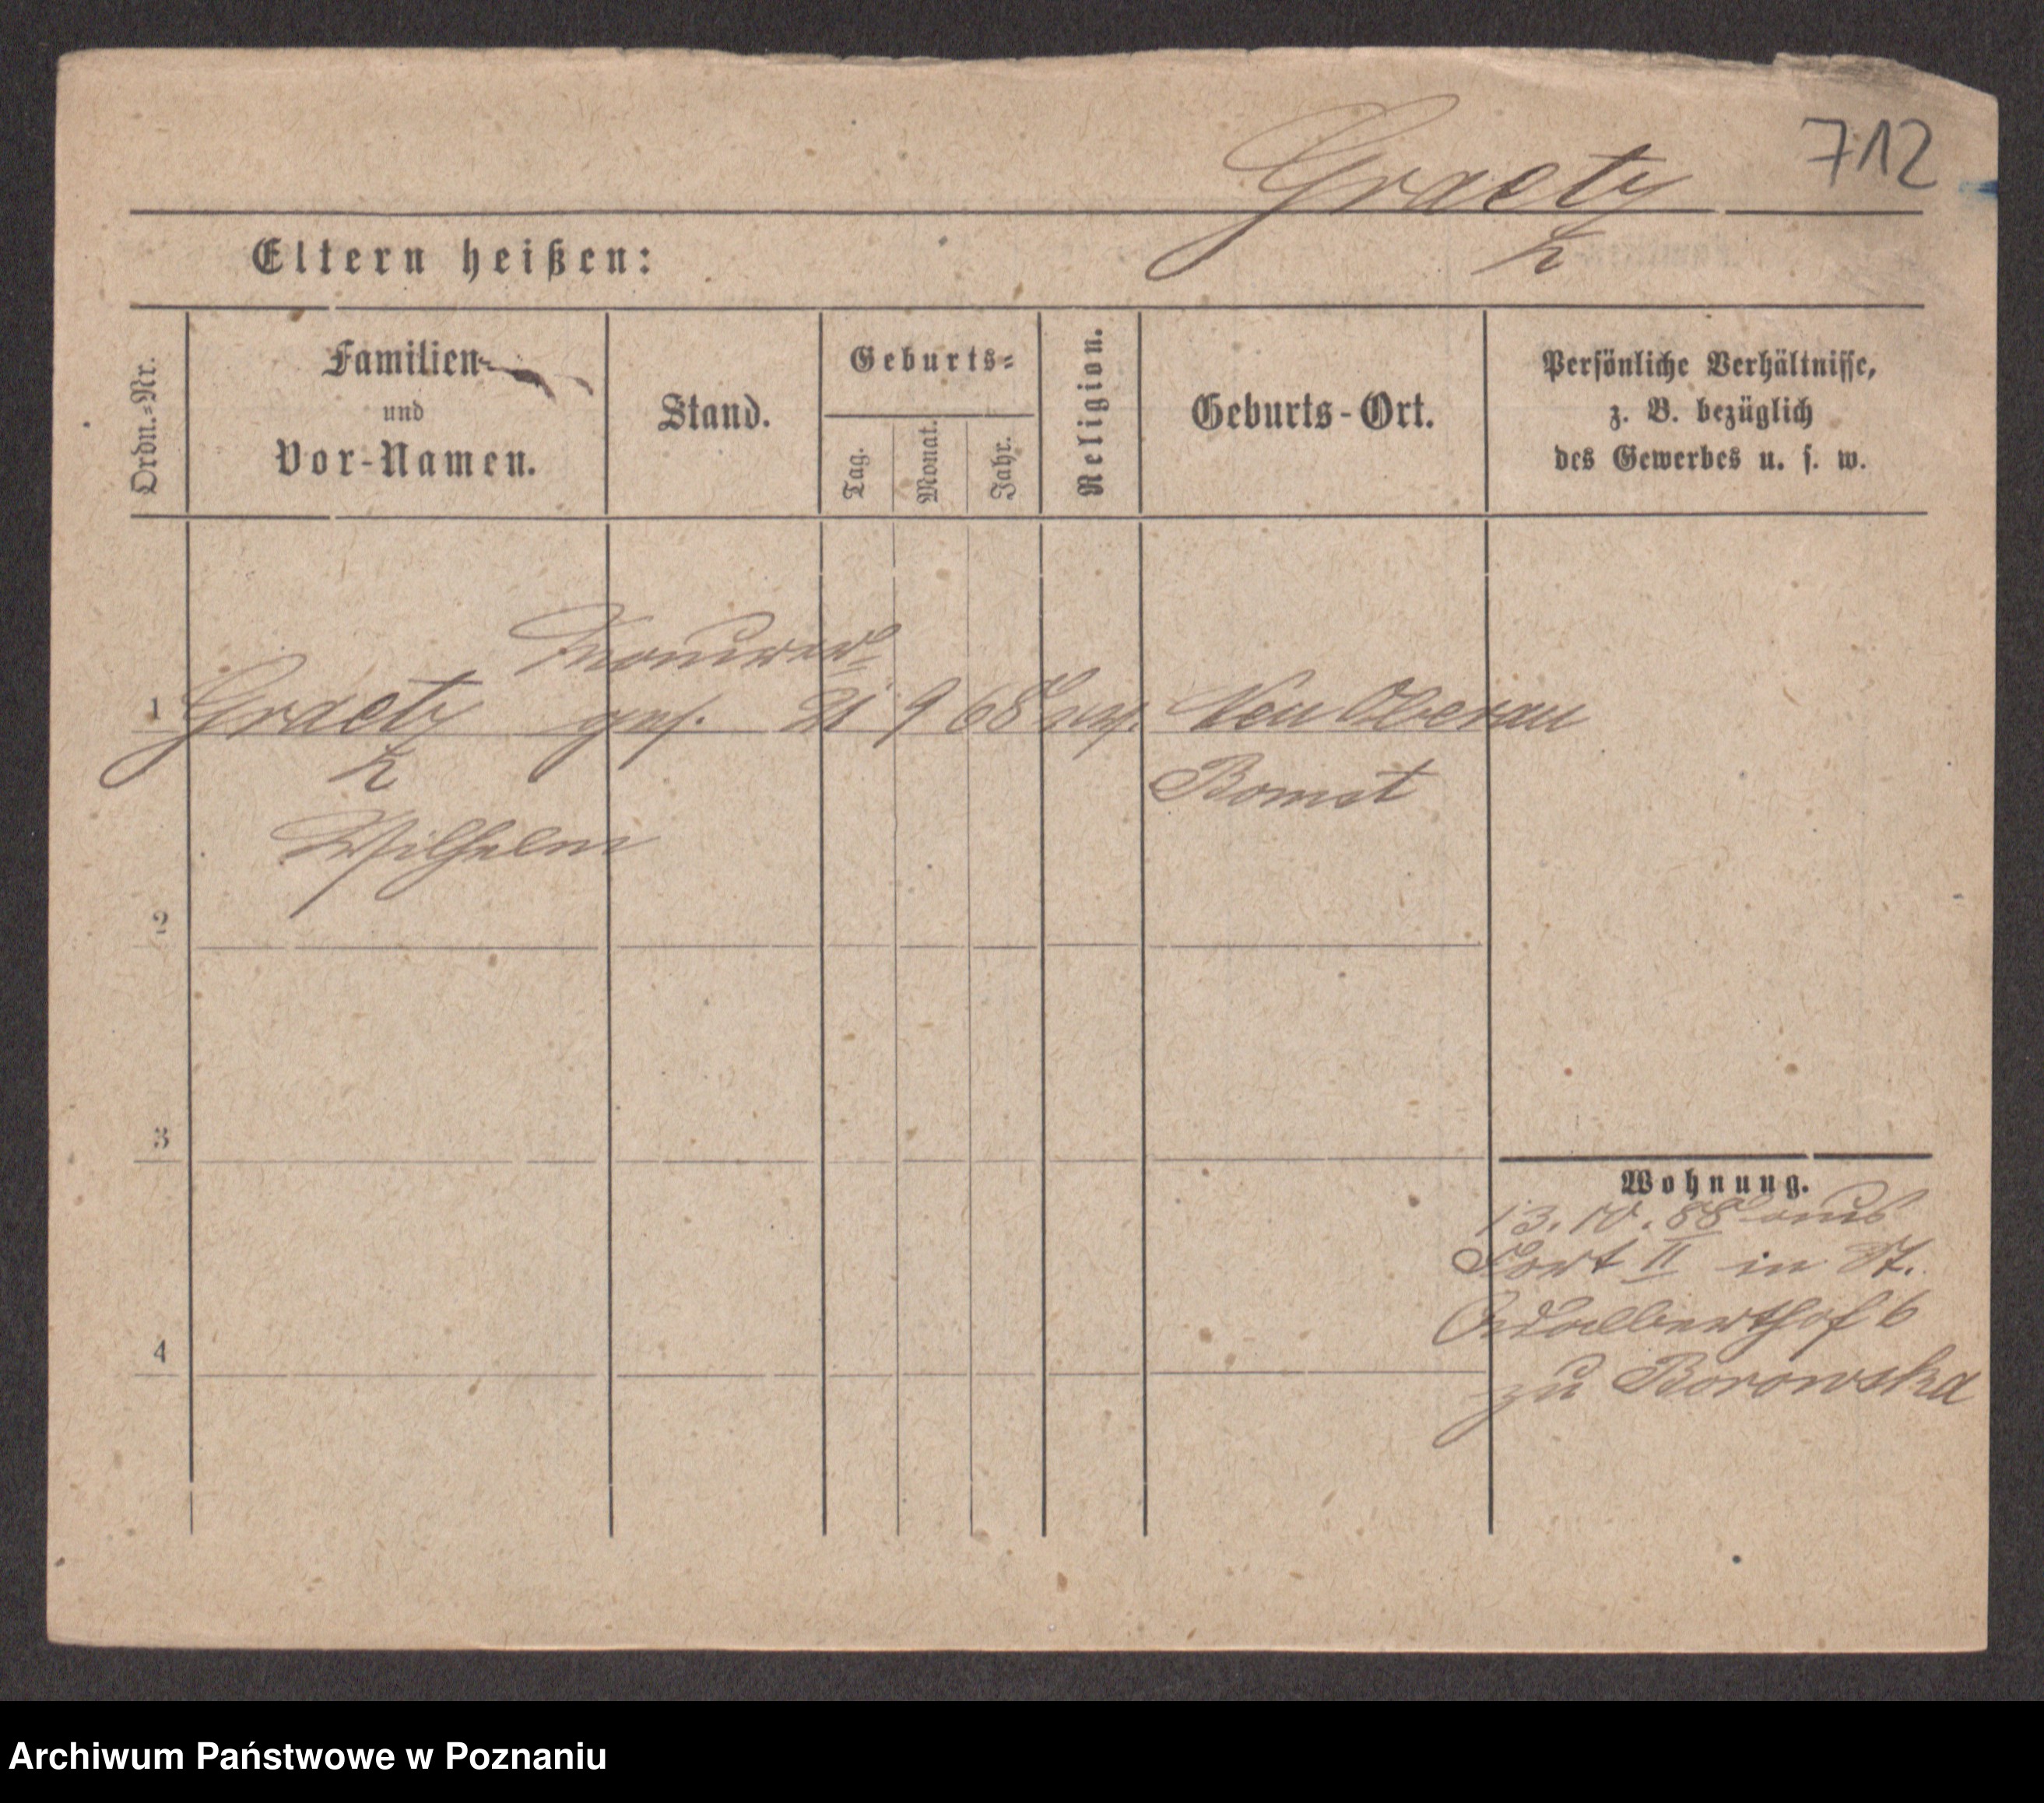 712
Graetz
Eltern heißen:
Ordn.=Nr.
Familien-
und
Vor-Namen.
Stand.
Geburts=
Tag.
Monat.
Jahr.
Religion.
Geburts-Ort.
Persönliche Verhältnisse,
z. B. bezüglich
des Gewerbes u. s. w.
Maurer=
1 Graetz ges. 21 9 68 ev. Neu Oberau
Bomst
Wilhelm
2
3
4
Wohnung.
13. 10. 88 aus
Fort II in St.
Adalberthof 6
zu Borowska
Archiwum Państwowe w Poznaniu